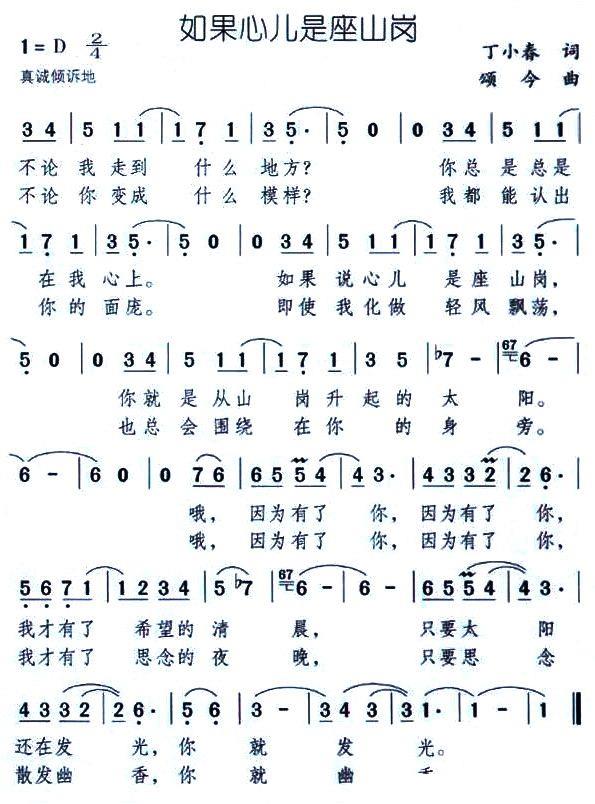 如果心儿是座山岗
1=D 2/4
丁小春 词
真诚倾诉地
颂今 曲
3 4 | 5 1 1 | 1 7 1 | 3 5· | 5 0 | 0 3 4 | 5 1 1 |
不论 我 走到 什么 地方? 你总 是 总是
不论 你 变成 什么 模样? 我都 能 认出
1 7 1 | 3 5· | 5 0 | 0 3 4 | 5 1 1 | 1 7 1 | 3 5· |
在我 心上。 如果 说心儿 是座 山岗,
你的 面庞。 即使 我化做 轻风 飘荡,
5 0 | 0 3 4 | 5 1 1 | 1 7 1 | 3 5 | ♭7 - | 67 6 - |
你就 是从山 岗升起的太 阳。
也总 会围绕 在你的身 旁。
6 - | 6 0 | 0 7 6 | 6 5 5 4 | 4 3· | 4 3 3 2 | 2 6· |
哦, 因为有了 你, 因为有了 你,
哦, 因为有了 你, 因为有了 你,
5 6 7 1 | 1 2 3 4 | 5 ♭7 | 67 6 - | 6 - | 6 5 5 4 | 4 3· |
我才有了 希望的清 晨, 只要太 阳
我才有了 思念的夜 晚, 只要思 念
4 3 3 2 | 2 6· | 5 6· | 3 - | 3 4 3 2 | 2 3 1· | 1 - | 1 ‖
还在发 光, 你 就 发 光。
散发幽 香, 你 就 幽